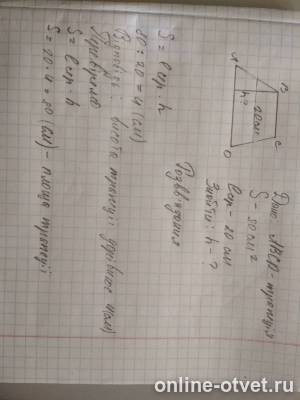 A
B
20см
h?
C
D
Дано: ABCD - трапеція
S - 80 см²
lсер - 20 см
Знайти: h - ?
Розв'язання
S = lсер · h
80 : 20 = 4 (см)
Відповідь: висота трапеції дорівнює 4(см)
Перевірка
S = lсер · h
S = 20 · 4 = 80 (см) - площа трапеції
online-otvet.ru